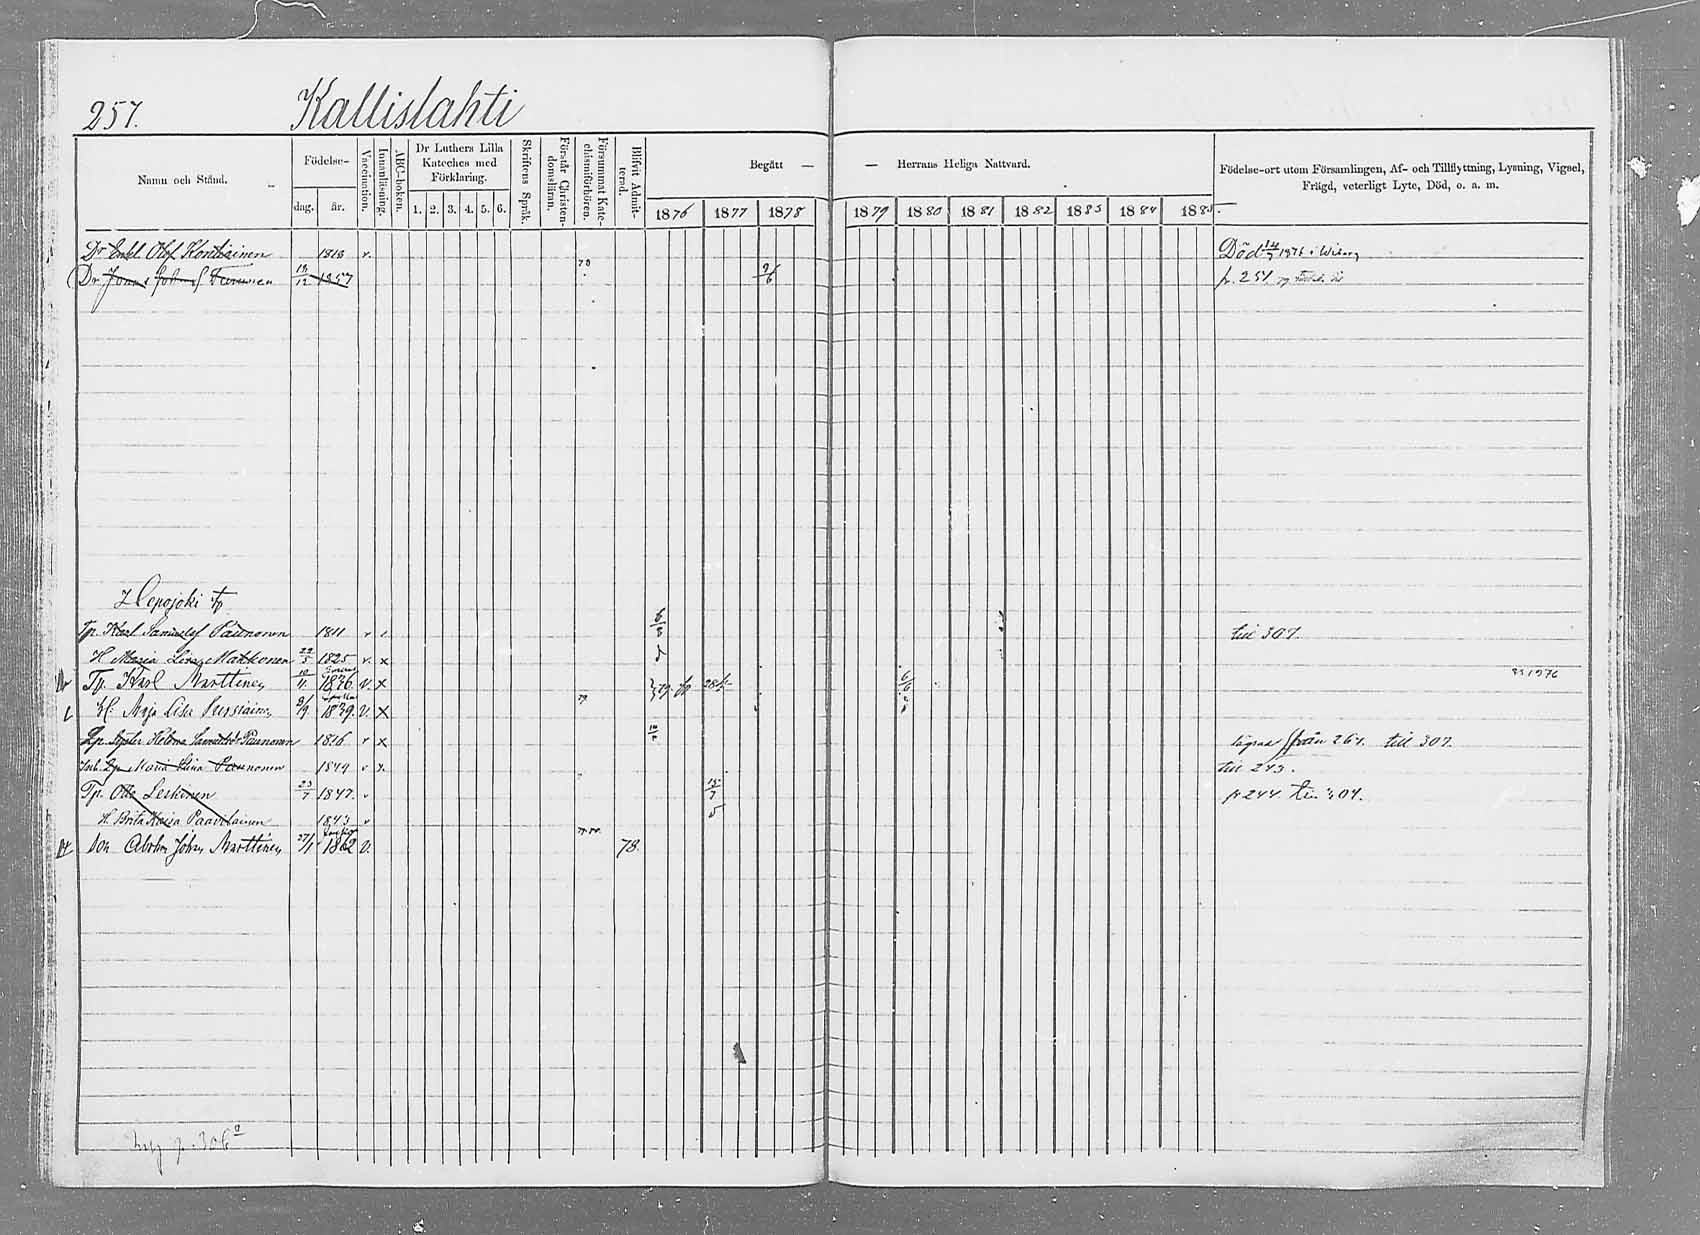 257. Kallislahti
Namn och Stånd.
Födelse-
dag. år.
Vaccination.
Innanläsning.
ABC-boken.
Dr Luthers Lilla
Kateches med
Förklaring.
1. 2. 3. 4. 5. 6.
Skriftens Språk.
Förstår Christen-
domsläran.
Försummat Kate-
chismiförhören.
Blifvit Admit-
terad.
Begått — — Herrans Heliga Nattvard.
1876 1877 1878 1879 1880 1881 1882 1883 1884 1885.
Födelse-ort utom Församlingen, Af- och Tillflyttning, Lysning, Vigsel,
Frägd, veterligt Lyte, Död, o. a. m.
Dr Enkl. Olof 1818 v. Död 1876 i Wiborg
Dr 1857 78 9/6 fr. 251
Hepojoki
Tp. Karl Samuelsf Paunonen 1811 v till 307.
H Maria Lisa Makkonen 22/5 1825 v. x
Tp. Karl Marttinen 10/11 1836. V. x
H: Maja Lisa 2/9 1839. V. x 79
Helena Paunonen 1816 v x från 264. till 307.
Maria Stina Paunonen 1849 v x. till 243.
Tp. Otto Leskinen 23/7 1847. v fr 244. till 304.
H. Brita Kaisa Paavilainen 1843 v
Son Abrh. Joh. Marttinen 27/1 1862 V. 78.
p. 306